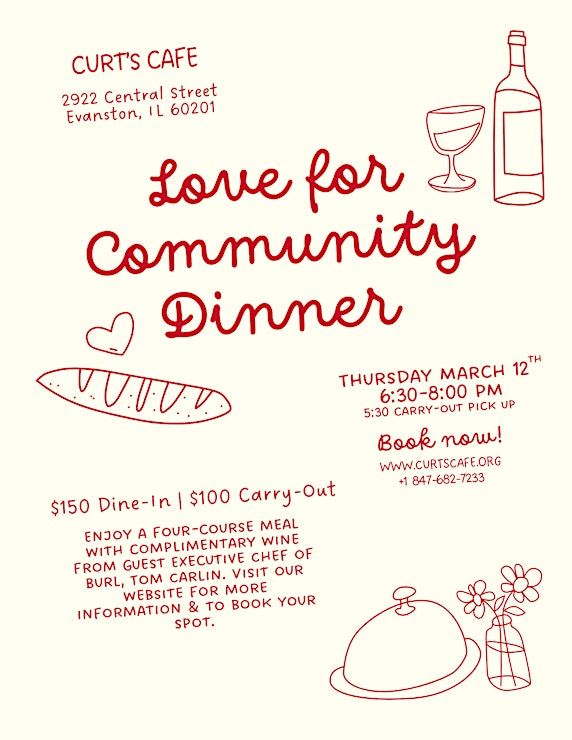 CURT'S CAFE
2922 Central Street
Evanston, IL 60201
Love for
Community
Dinner
THURSDAY MARCH 12TH
6:30-8:00 PM
5:30 CARRY-OUT PICK UP
Book now!
WWW.CURTSCAFE.ORG
+1 847-682-7233
$150 Dine-In | $100 Carry-Out
ENJOY A FOUR-COURSE MEAL
WITH COMPLIMENTARY WINE
FROM GUEST EXECUTIVE CHEF OF
BURL, TOM CARLIN. VISIT OUR
WEBSITE FOR MORE
INFORMATION & TO BOOK YOUR
SPOT.